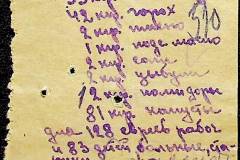 42 кгр. горох
2 кгр. пшено
1 кгр. подс. масло
2 кгр. соли
2 кгр. цыбули
12 кгр. помидоры
81 кгр. капусты
для 128 евреев рабоч
и 83 дітей больные, ста-